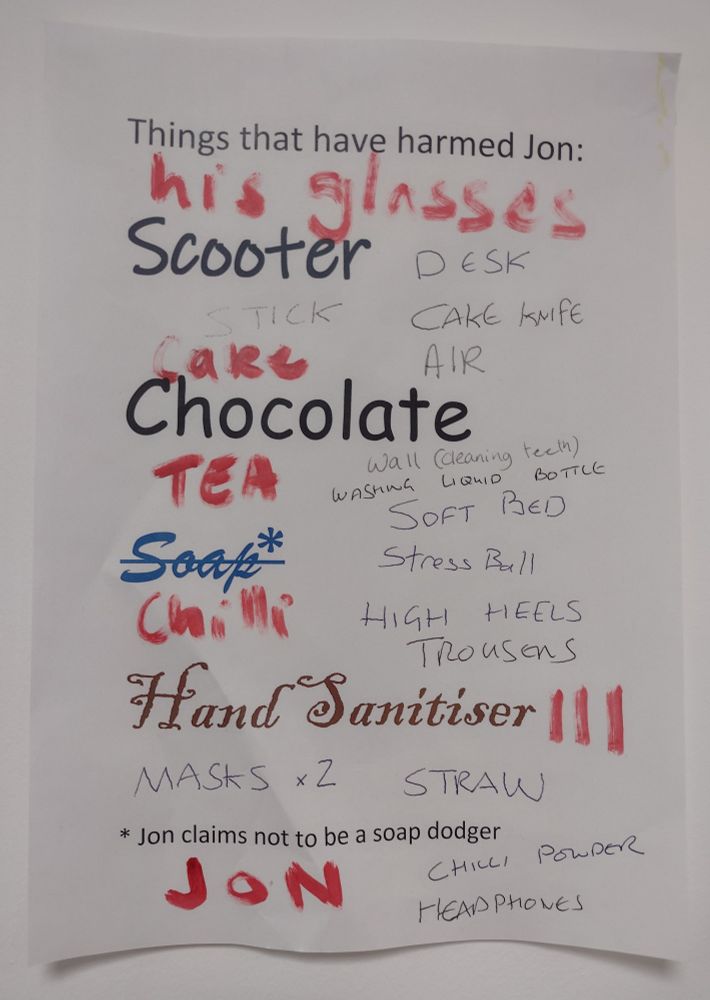 Things that have harmed Jon:
his glasses
Scooter DESK
STICK CAKE KNIFE
Cake AIR
Chocolate
Wall (cleaning teeth)
TEA WASHING LIQUID BOTTLE
SOFT BED
Soap* Stress Ball
Chilli HIGH HEELS
TROUSERS
Hand Sanitiser III
MASKS x2 STRAW
* Jon claims not to be a soap dodger
JON CHILLI POWDER
HEADPHONES